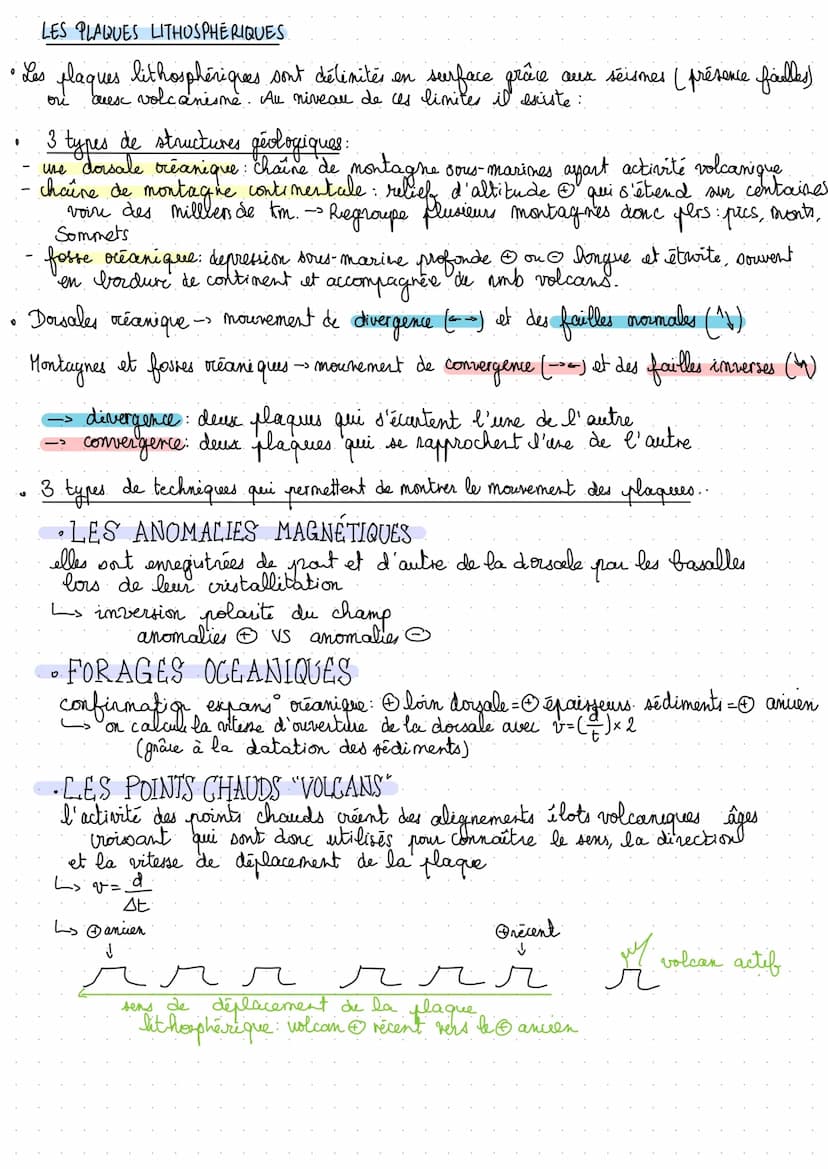 LES PLAQUES LITHOSPHÉRIQUES
• Les plaques lithosphériques sont délimités en surface grâce aux séismes ( présence failles)
ou avec volcanisme. Au niveau de ces limites il existe :
• 3 types de structures géologiques :
- une dorsale océanique : chaîne de montagne sous-marines ayant activité volcanique
- chaîne de montagne continentale : relief d'altitude ⊕ qui s'étend sur centaines
voire des milliers de km. → Regroupe plusieurs montagnes donc plrs : pics, monts,
sommets
- fosse océanique : depression sous-marine profonde ⊕ ou ⊖ longue et étroite, souvent
en bordure de continent et accompagnée de nmb volcans.
• Dorsales océanique → mouvement de divergence (←→) et des failles normales (↑↓)
Montagnes et fosses océaniques → mouvement de convergence (→←) et des failles inverses (↓↑)
→ divergence : deux plaques qui s'écartent l'une de l'autre
→ convergence : deux plaques qui se rapprochent l'une de l'autre
• 3 types de techniques qui permettent de montrer le mouvement des plaques..
• LES ANOMALIES MAGNÉTIQUES
elles sont enregistrées de part et d'autre de la dorsale par les basaltes
lors de leur cristallisation
↳ inversion polarité du champ
anomalies ⊕ VS anomalies ⊖
• FORAGES OCEANIQUES
confirmation expans° océanique : ⊕ loin dorsale = ⊕ épaisseurs sédiments = ⊕ ancien
↳ on calcule la vitesse d'ouverture de la dorsale avec v=(d/t)×2
(grâce à la datation des sédiments)
• LES POINTS CHAUDS "VOLCANS"
l'activité des points chauds créent des alignements îlots volcaniques âges
croissant qui sont donc utilisés pour connaître le sens, la direction
et la vitesse de déplacement de la plaque
↳ v= d/Δt
↳ ⊕ ancien ⊕ récent
volcan actif
sens de déplacement de la plaque
lithosphérique : volcan ⊕ récent vers le ⊕ ancien